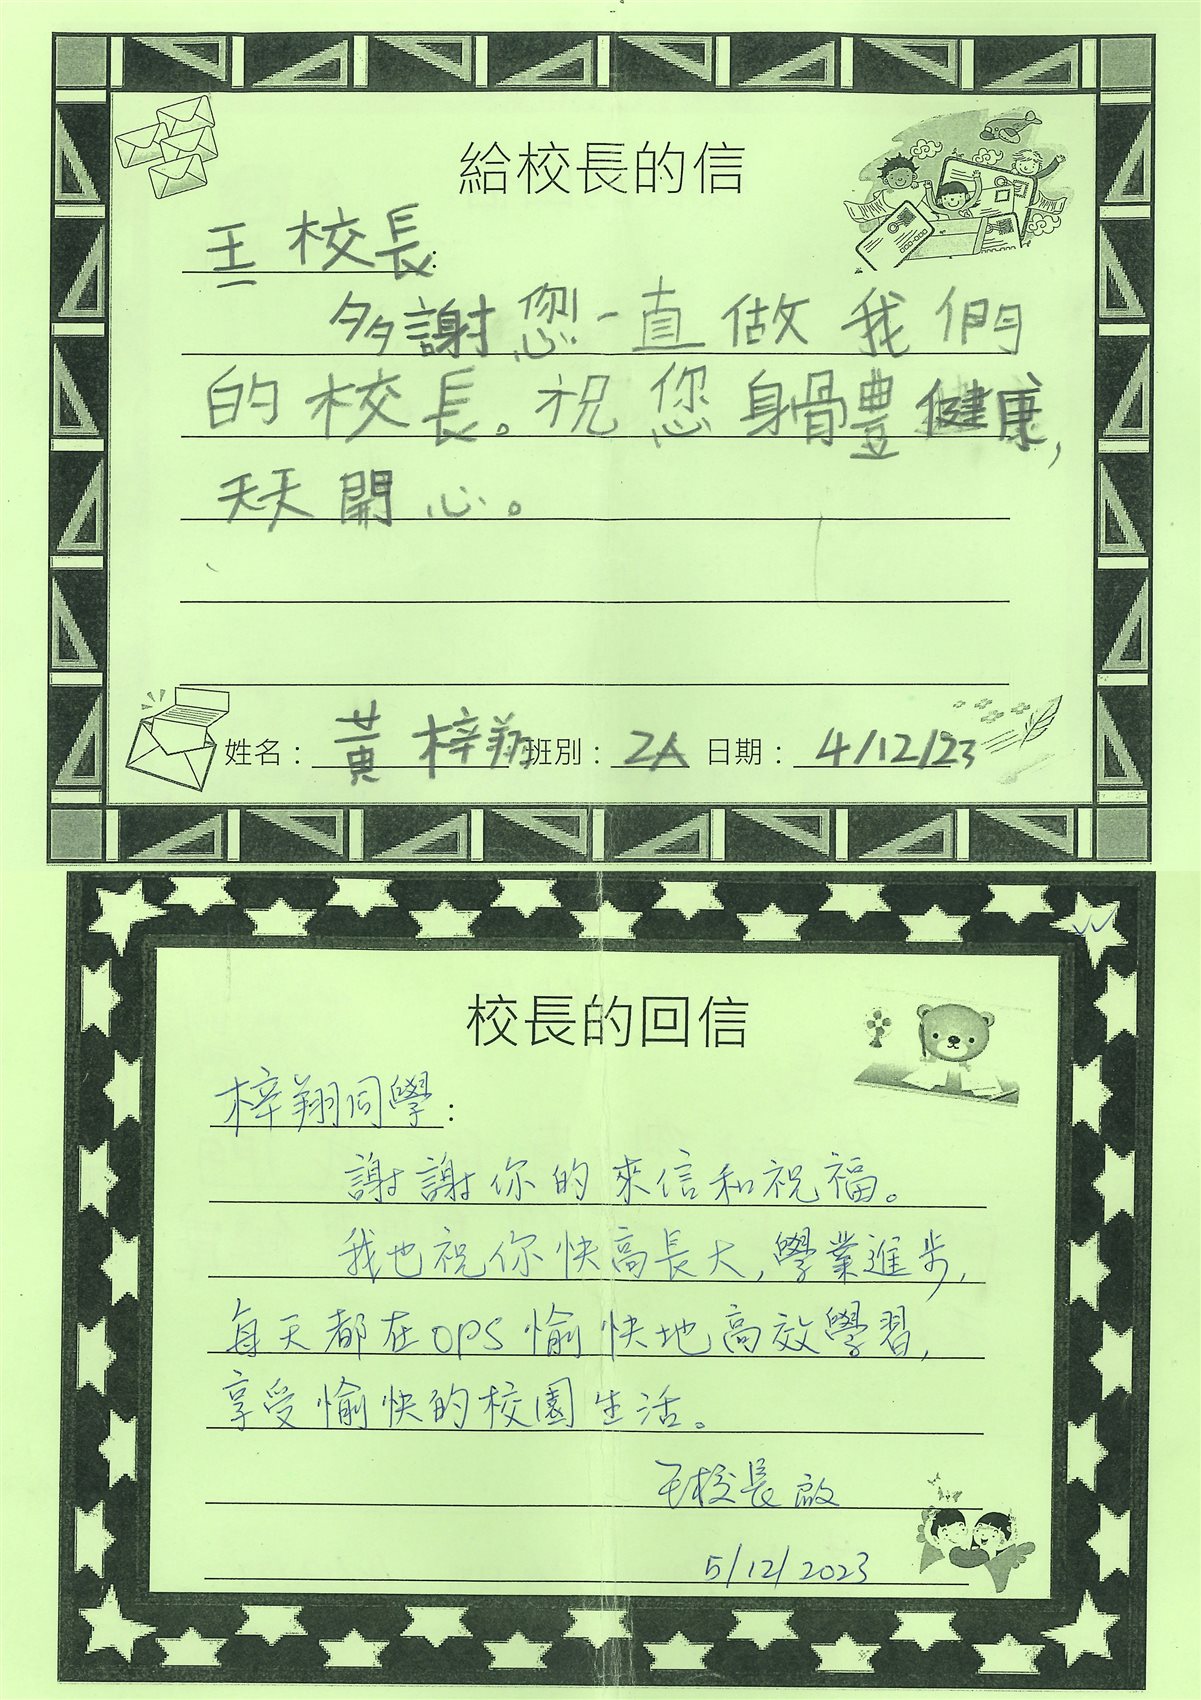 給校長的信
王校長:
多謝您一直做我們
的校長。祝您身體健康,
天天開心。
姓名： 黃梓翔 班別： 2A 日期： 4/12/23
校長的回信
梓翔同學:
謝謝你的來信和祝福。
我也祝你快高長大,學業進步,
每天都在OPS愉快地高效學習,
享受愉快的校園生活。
王校長啟
5/12/2023